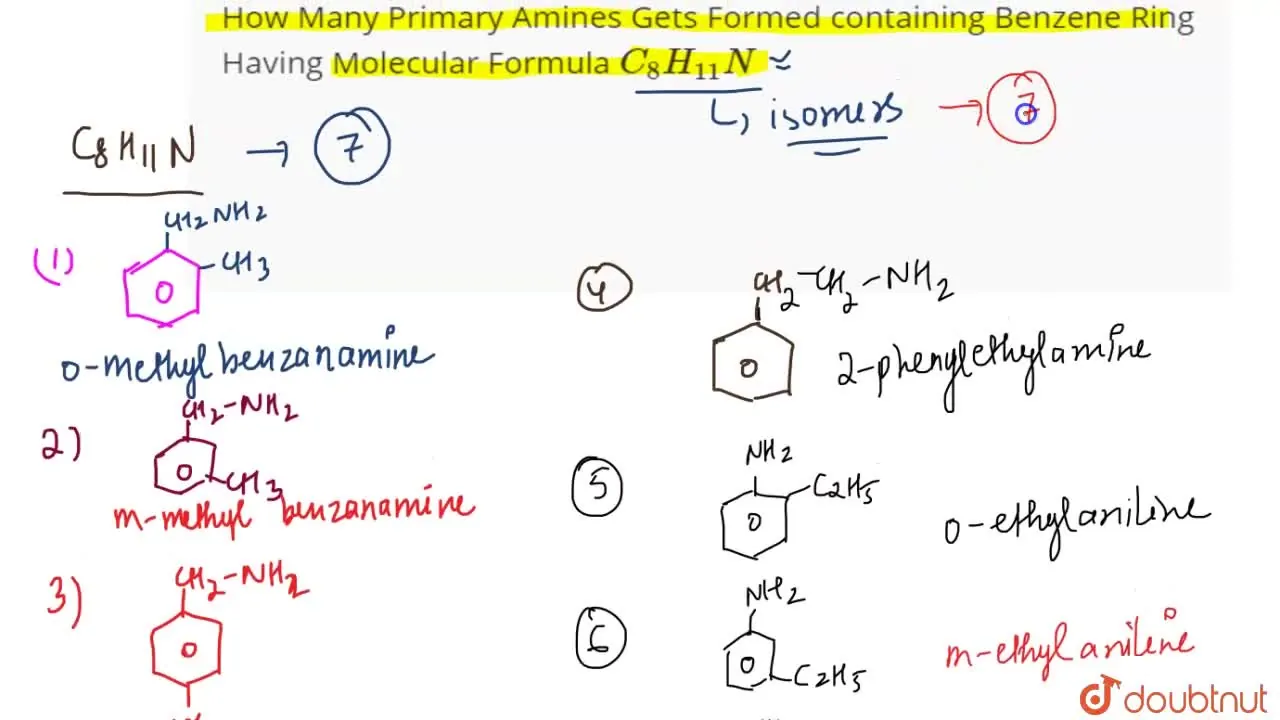 How Many Primary Amines Gets Formed containing Benzene Ring
Having Molecular Formula C₈H₁₁N
isomers → 7
C₈H₁₁N → 7
(1)
CH₂NH₂
CH₃
o-methylbenzanamine
2)
CH₂-NH₂
CH₃
m-methyl benzanamine
3)
CH₂-NH₂
4
CH₂-CH₂-NH₂
2-phenylethylamine
5
NH₂
C₂H₅
o-ethylaniline
6
NH₂
C₂H₅
m-ethylanilene
doubtnut